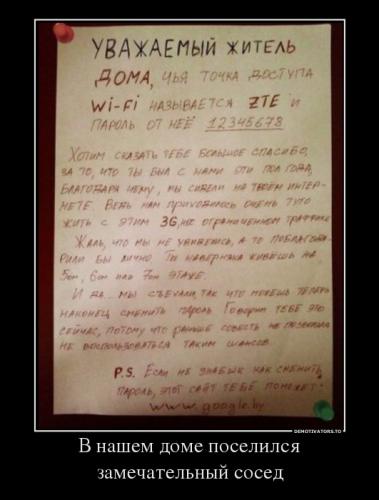 УВАЖАЕМЫЙ ЖИТЕЛЬ
ДОМА, ЧЬЯ ТОЧКА ДОСТУПА
Wi-Fi НАЗЫВАЕТСЯ ZTE И
ПАРОЛЬ ОТ НЕЁ 12345678
ХОТИМ СКАЗАТЬ ТЕБЕ БОЛЬШОЕ СПАСИБО,
ЗА ТО, ЧТО ТЫ БЫЛ С НАМИ ЭТИ ПОЛ ГОДА,
БЛАГОДАРЯ ЧЕМУ, МЫ СИДЕЛИ НА ТВОЁМ ИНТЕР-
НЕТЕ. ВЕДЬ НАМ ПРИХОДИЛОСЬ ОЧЕНЬ ТУГО
ЖИТЬ С ЭТИМ 3G, ОГРАНИЧЕННОМ ТРАФИКЕ
ЖАЛЬ, ЧТО МЫ НЕ УВИДЕЛИСЬ, А ТО ПОБЛАГОДА-
РИЛИ БЫ ЛИЧНО ТЫ НАВЕРНЯКА ЖИВЁШЬ НА
5ом, 6ом ИЛИ 7ом ЭТАЖЕ.
И ДА... МЫ СЪЕХАЛИ, ТАК ЧТО МОЖЕШЬ ТЕПЕРЬ
НАКОНЕЦ СМЕНИТЬ ПАРОЛЬ ГОВОРИМ ТЕБЕ ЭТО
СЕЙЧАС, ПОТОМУ ЧТО РАНЬШЕ СОВЕСТЬ НЕ ПОЗВОЛЯЛА
НЕ ВОСПОЛЬЗОВАТЬСЯ ТАКИМ ШАНСОМ.
P.S. ЕСЛИ НЕ ЗНАЕШЬ КАК СМЕНИТЬ
ПАРОЛЬ, ЭТОТ САЙТ ТЕБЕ ПОМОЖЕТ:
www.google.by
DEMOTIVATORS.TO
В нашем доме поселился
замечательный сосед